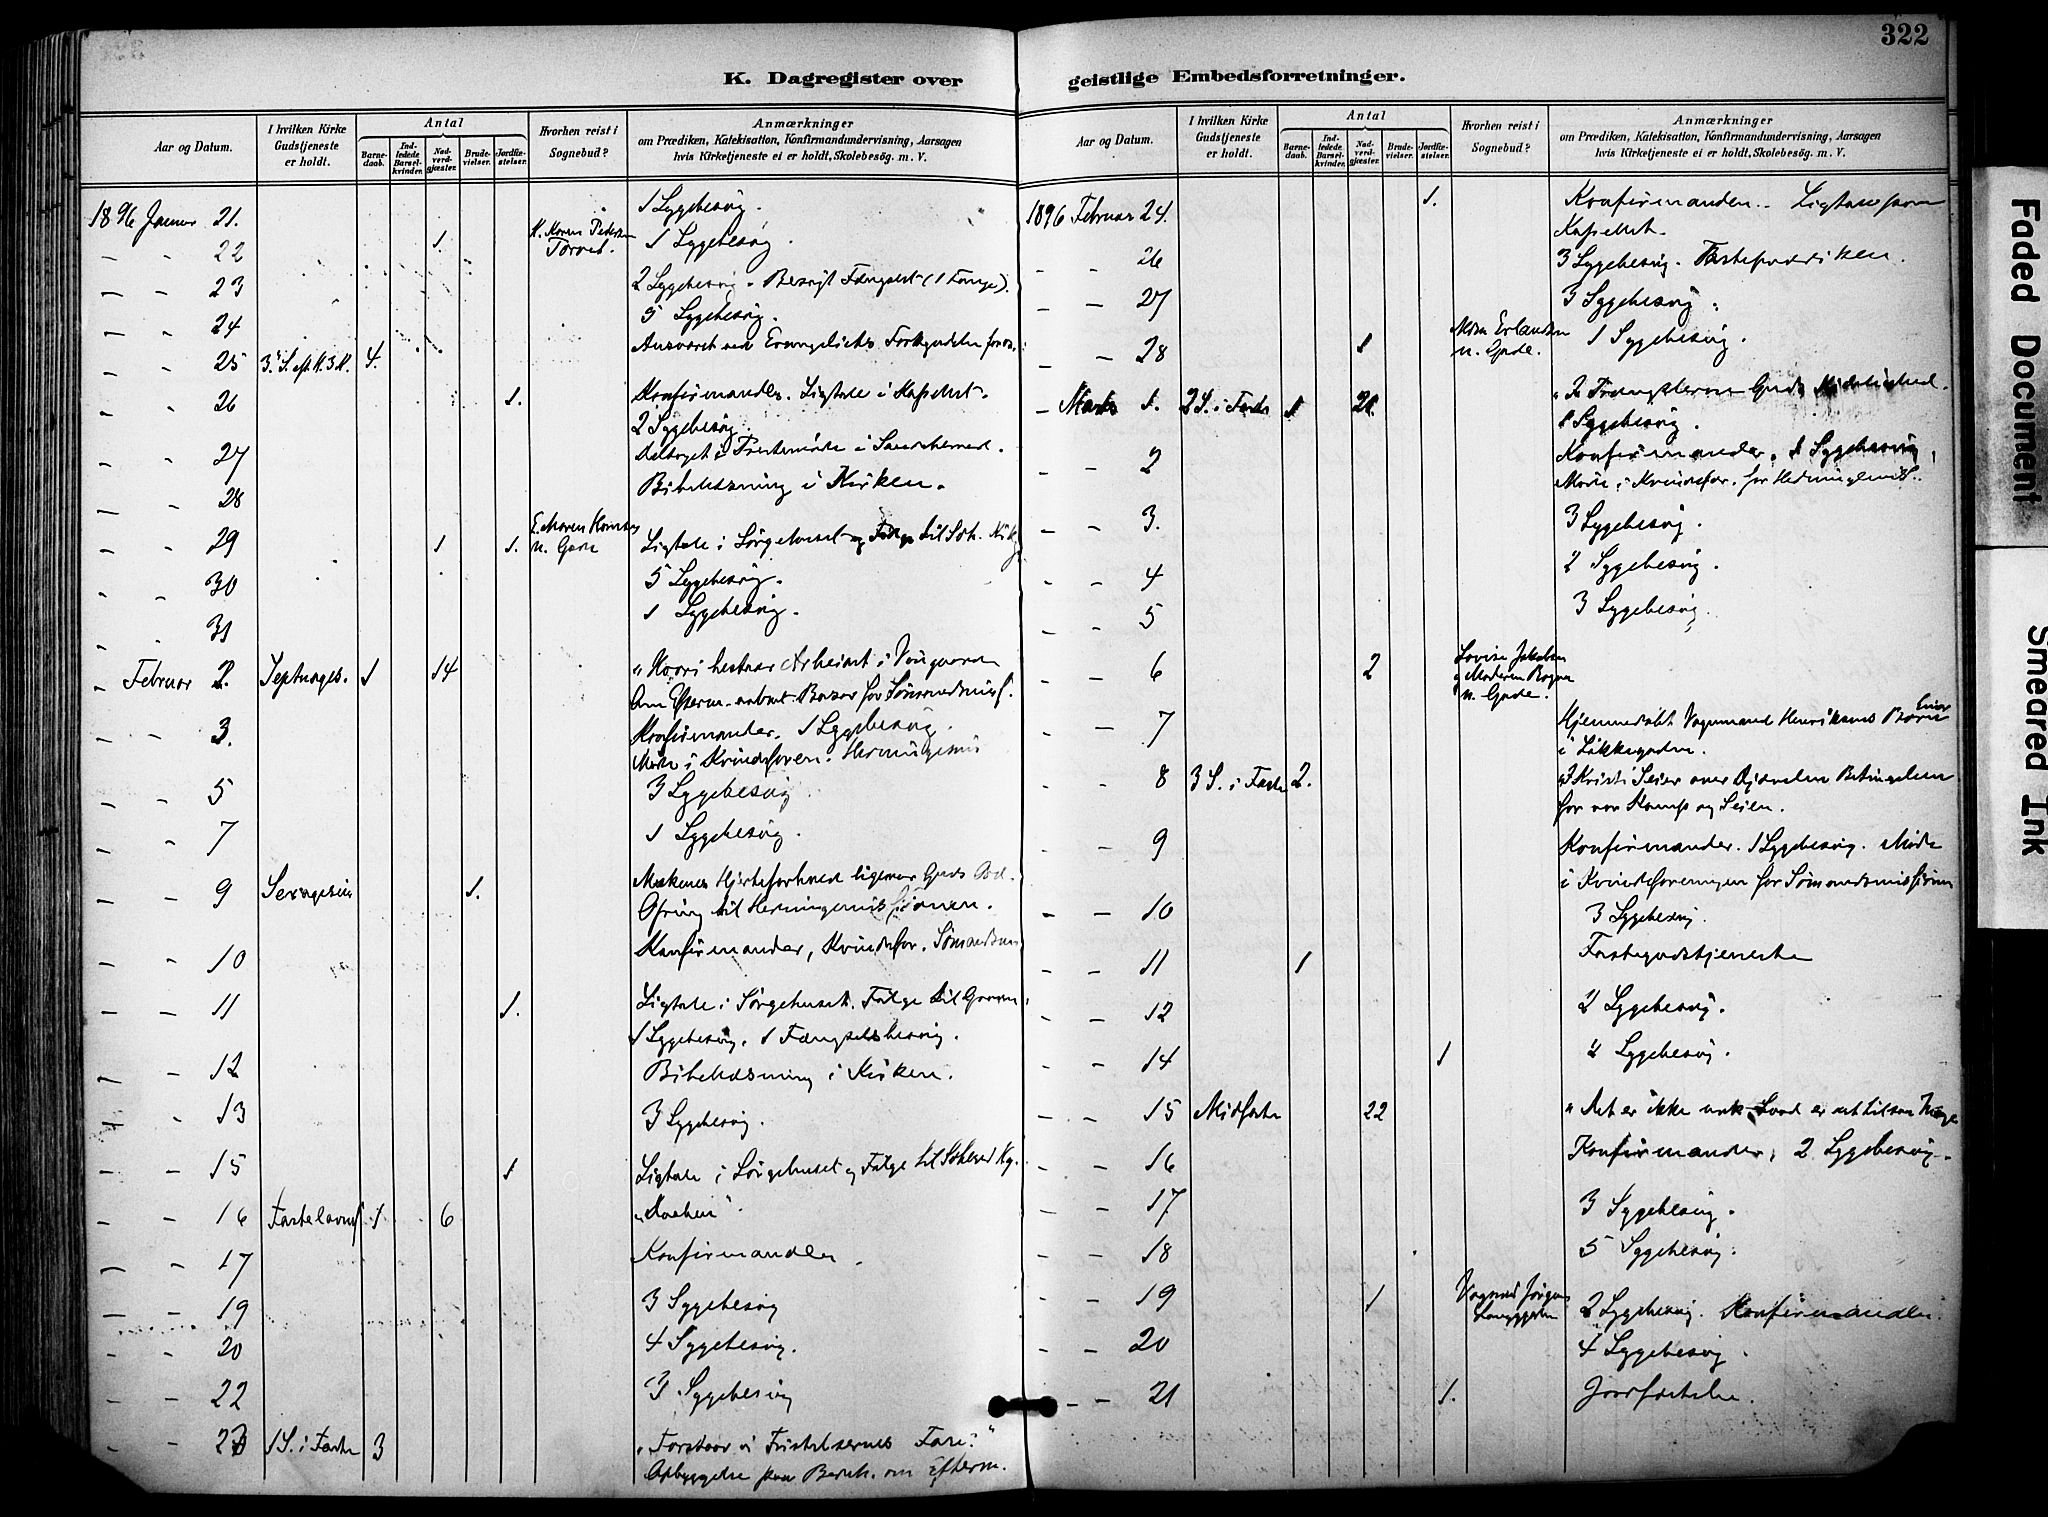 322
K. Dagregister over geistlige Embedsforretninger.
Aar og Datum.
I hvilken Kirke Gudstjeneste er holdt.
Antal
Barnedaab.
Indledede Barselkvinder.
Nadverdgjæster.
Brudevielser.
Jordfæstelser.
Hvorhen reist i Sognebud?
Anmærkninger
om Prædiken, Katekisation, Konfirmandundervisning, Aarsagen
hvis Kirketjeneste ei er holdt, Skolebesög. m. V.
1896 Januar 21. 1 Sygebesøg.
- - 22 1. Torvet. 1 Sygebesøg.
- - 23 2 Sygebesøg. Besøgt Fængslet (1 Fange).
- - 24 5 Sygebesøg.
- - 25 4. Ansvaret ved Evangeliets Forkyndelse
- - 26 1. Konfirmander. Ligtale i Kapellet.
2 Sygebesøg.
- - 27 Deltaget i Præstemøde i
- - 28 Bibellæsning i Kirken.
- - 29 1 1. n. Gade Ligtale i Sørgehuset og Følge til
- - 30 5 Sygebesøg.
- - 31 1 Sygebesøg.
- Februar 2. Septuages. 1 14 "Hvori bestaar Arbeidet i Vingaarden
Bazar for Sømandsmis.
- - 3. Konfirmander. 1 Sygebesøg.
Møde i Kvindeforen. Hedningemis
- - 5 3 Sygebesøg
- - 7 1 Sygebesøg.
- - 9 Sexagesima 1. ligeover Guds Ord.
Ofring til Hedningemissionen.
- - 10 Konfirmander, Kvindefor. Sømandsm
- - 11 1. Ligtale i Sørgehuset. Følge til Graven.
1 Sygebesøg. 1 Fængselsbesøg.
- - 12 Bibellæsning i Kirken.
- - 13 3 Sygebesøg.
- - 15 1 Ligtale i Sørgehuset og Følge til
- - 16 Fastelavns 1 6
- - 17 Konfirmander.
- - 19 3 Sygebesøg
- - 20 4 Sygebesøg.
- - 22 3 Sygebesøg
- - 23 1 S. i Faste 3 "Forstaar vi Fristelsernes Fare?"
Opbyggelse paa Bedeh. om Efterm.
Aar og Datum.
I hvilken Kirke Gudstjeneste er holdt.
Antal
Barnedaab.
Indledede Barselkvinder.
Nadverdgjæster.
Brudevielser.
Jordfæstelser.
Hvorhen reist i Sognebud?
Anmærkninger
om Prædiken, Katekisation, Konfirmandundervisning, Aarsagen
hvis Kirketjeneste ei er holdt, Skolebesög. m. V.
1896 Februar 24. 1. Konfirmander. Ligtale
Kapellet.
- - 26 3 Sygebesøg. Fasteprædiken.
- - 27 3 Sygebesøg.
- - 28 1 Erlandsen n. Gade. 1 Sygebesøg.
- Marts 1. 2 S. i Faste 1 21.
1 Sygebesøg.
- - 2 Konfirmander. 1 Sygebesøg.
Møde i Kvindefor. for Hedningemis.
- - 3. 3 Sygebesøg.
- - 4 2 Sygebesøg.
- - 5 3 Sygebesøg.
- - 6 2 Lovise Jakobsen
n. Gade.
- - 7 Hjemmedøbt Vognmand Henriksens
i Løkkegaden.
- - 8 3 S. i Faste 2. Kristi Seier over Djævelen Betingelsen
for vor Kamp og Seier.
- - 9 Konfirmander. 1 Sygebesøg. Møde
i Kvindeforeningen for Sømandsmissionen
- - 10 3 Sygebesøg.
- - 11 1 Fastegudstjeneste
- - 12 2 Sygebesøg.
- - 14 1 2 Sygebesøg.
- - 15 Midfaste 22 "Det er ikke nok
- - 16 Konfirmander, 2 Sygebesøg.
- - 17 3 Sygebesøg.
- - 18 5 Sygebesøg.
- - 19 1 2 Sygebesøg. Konfirmander.
- - 20 4 Sygebesøg.
- - 21 1. Jordfæstelse.
Faded Document
Smeared Ink